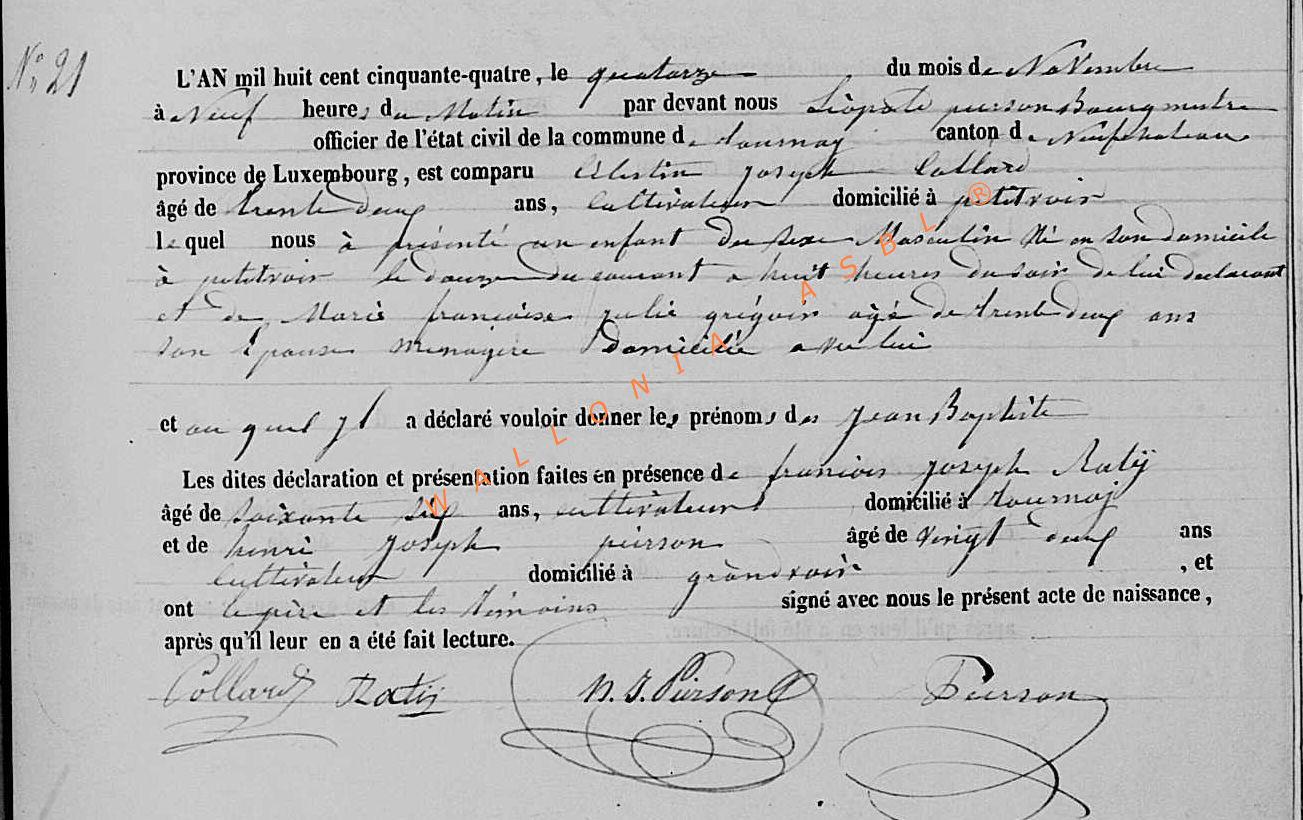 N° 21
L'AN mil huit cent cinquante-quatre, le quatorze du mois de Novembre
à Neuf heures du Matin par devant nous Léopole pierson Bourgmestre
officier de l'état civil de la commune de tournay canton de Neufchateau
province de Luxembourg, est comparu Célestin Joseph Collard
âgé de trente deux ans, Cultivateur domicilié à petitvoir
le quel nous à présenté un enfant du sexe Masculin Né en son domicile
à petitvoir le douze du courant a huit heures du soir de lui declarant
et de Marie françoise julie grégoir agé de trente deux ans
son Epouse menagère Domicilié avec lui
et au quel il a déclaré vouloir donner les prénoms de Jean Baptiste
Les dites déclaration et présentation faites en présence de francois Joseph Ratÿ
âgé de soixante six ans, cultivateur domicilié à tournaj
et de henri Joseph pierson âgé de vingt deux ans
Cultivateur domicilié à grandvoir , et
ont le père et les témoins signé avec nous le présent acte de naissance,
après qu'il leur en a été fait lecture.
Collard Ratij h. J. Pierson Pierson
WALLONIA ASBL ®